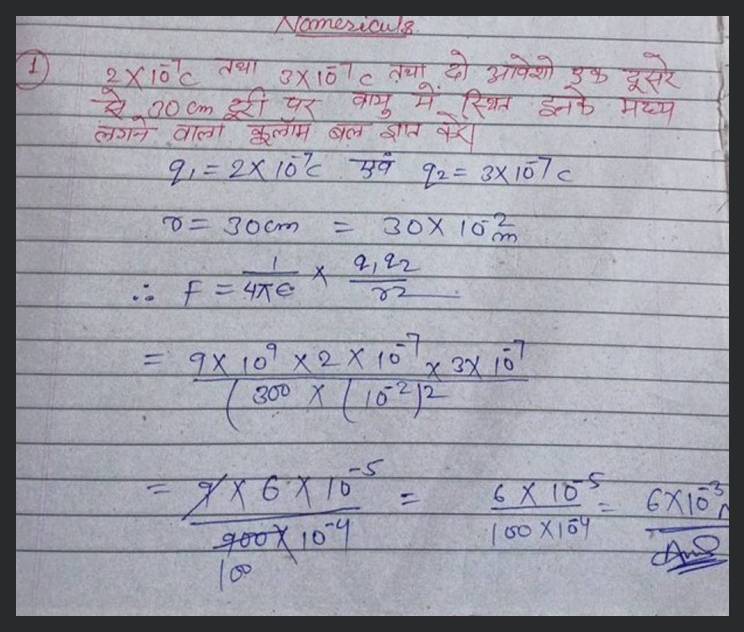 Numericals
1 2×10⁻⁷c तथा 3×10⁻⁷c तथा दो आवेशो एक दूसरे
से 30 cm दूरी पर वायु में स्थित इनके मध्य
लगने वाला कूलॉम बल ज्ञात करे।
q₁ = 2×10⁻⁷c एवं q₂ = 3×10⁻⁷c
r = 30cm = 30×10⁻²m
∴ F = 1/4πϵ × q₁q₂/r2
= 9×10⁹×2×10⁻⁷×3×10⁻⁷
(300 × (10⁻²)²
= 9×6×10⁻⁵/900×10⁻⁴ = 6×10⁻⁵/100×10⁻⁴ = 6×10⁻³N
100 Ans